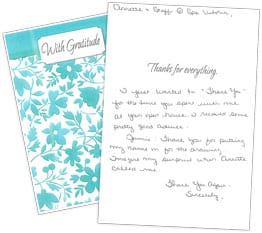 With Gratitude
Annette & Staff @ Spa Victoria,
Thanks for everything.
I just wanted to "Thank You"
for the time you spent with me
at your open house. I received some
pretty good advice.
Thank You for putting
my name in for the drawing.
Imagine my surprise when Annette
called me.
Thank You Again -
Sincerely,